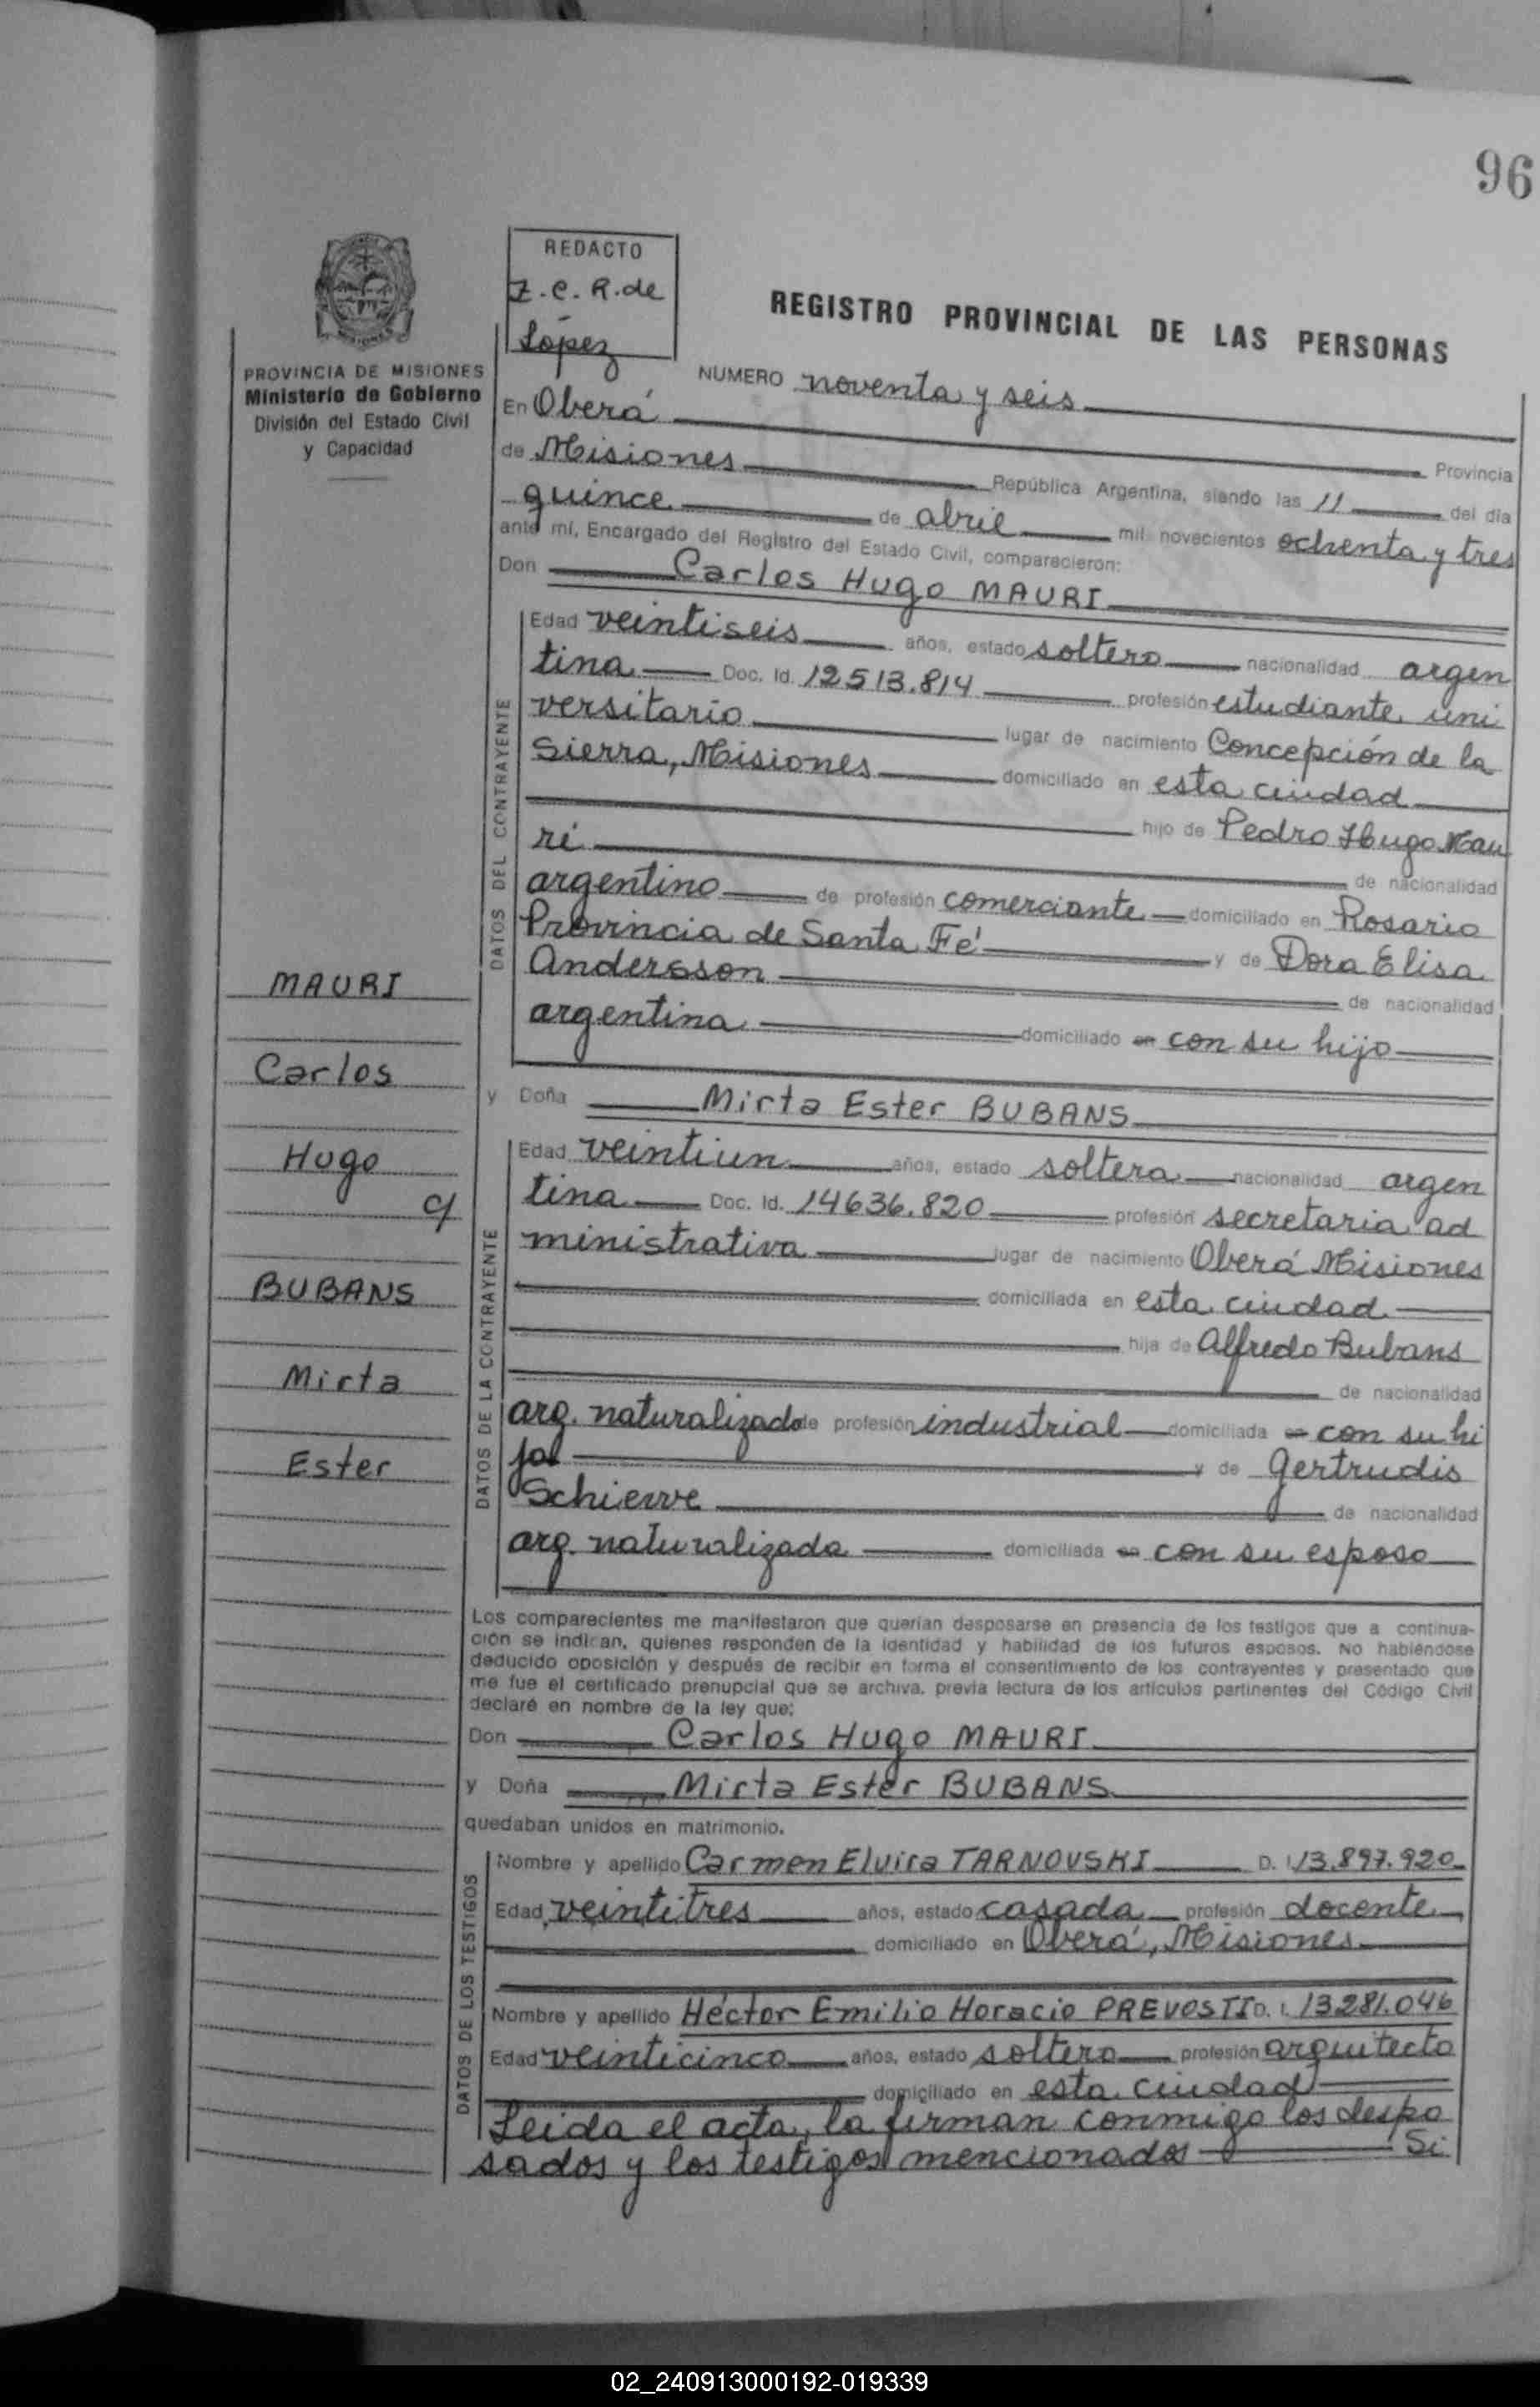 96
REDACTO
Z. C. R. de
López
REGISTRO PROVINCIAL DE LAS PERSONAS
PROVINCIA DE MISIONES
Ministerio de Gobierno
División del Estado Civil
y Capacidad
NUMERO noventa y seis
En Oberá Provincia
de Misiones República Argentina, siendo las 11 del día
quince de abril mil novecientos ochenta y tres
ante mí, Encargado del Registro del Estado Civil, comparecieron:
Don Carlos Hugo MAURI
DATOS DEL CONTRAYENTE
Edad veintiseis años, estado soltero nacionalidad argen
tina Doc. Id. 12513.814 profesión estudiante uni
versitario lugar de nacimiento Concepción de la
Sierra, Misiones domiciliado en esta ciudad
hijo de Pedro Hugo Mau
ri de nacionalidad
argentino de profesión comerciante domiciliado en Rosario
Provincia de Santa Fé y de Dora Elisa
Andersson de nacionalidad
argentina domiciliado en con su hijo
y Doña Mirta Ester BUBANS
DATOS DE LA CONTRAYENTE
Edad veintiun años, estado soltera nacionalidad argen
tina Doc. Id. 14636.820 profesión secretaria ad
ministrativa lugar de nacimiento Oberá Misiones
domiciliada en esta ciudad
hija de Alfredo Bubans
de nacionalidad
arg. naturalizado de profesión industrial domiciliada en con su hi
ja y de Gertrudis
Schierre de nacionalidad
arg. naturalizada domiciliada en con su esposo
MAURI
Carlos
Hugo
c/
BUBANS
Mirta
Ester
Los comparecientes me manifestaron que querían desposarse en presencia de los testigos que a continua-
ción se indican, quienes responden de la identidad y habilidad de los futuros esposos. No habiéndose
deducido oposición y después de recibir en forma el consentimiento de los contrayentes y presentado que
me fue el certificado prenupcial que se archiva, previa lectura de los artículos pertinentes del Código Civil
declaré en nombre de la ley que:
Don Carlos Hugo MAURI
y Doña Mirta Ester BUBANS
quedaban unidos en matrimonio.
DATOS DE LOS TESTIGOS
Nombre y apellido Carmen Elvira TARNOVSKI D. I. 13.897.920
Edad veintitres años, estado casada profesión docente
domiciliado en Oberá, Misiones
Nombre y apellido Héctor Emilio Horacio PREVOSTI D. I. 13281.046
Edad veinticinco años, estado soltero profesión arquitecto
domiciliado en esta ciudad
Leida el acta, la firman conmigo los despo
sados y los testigos mencionados Si
02_240913000192-019339